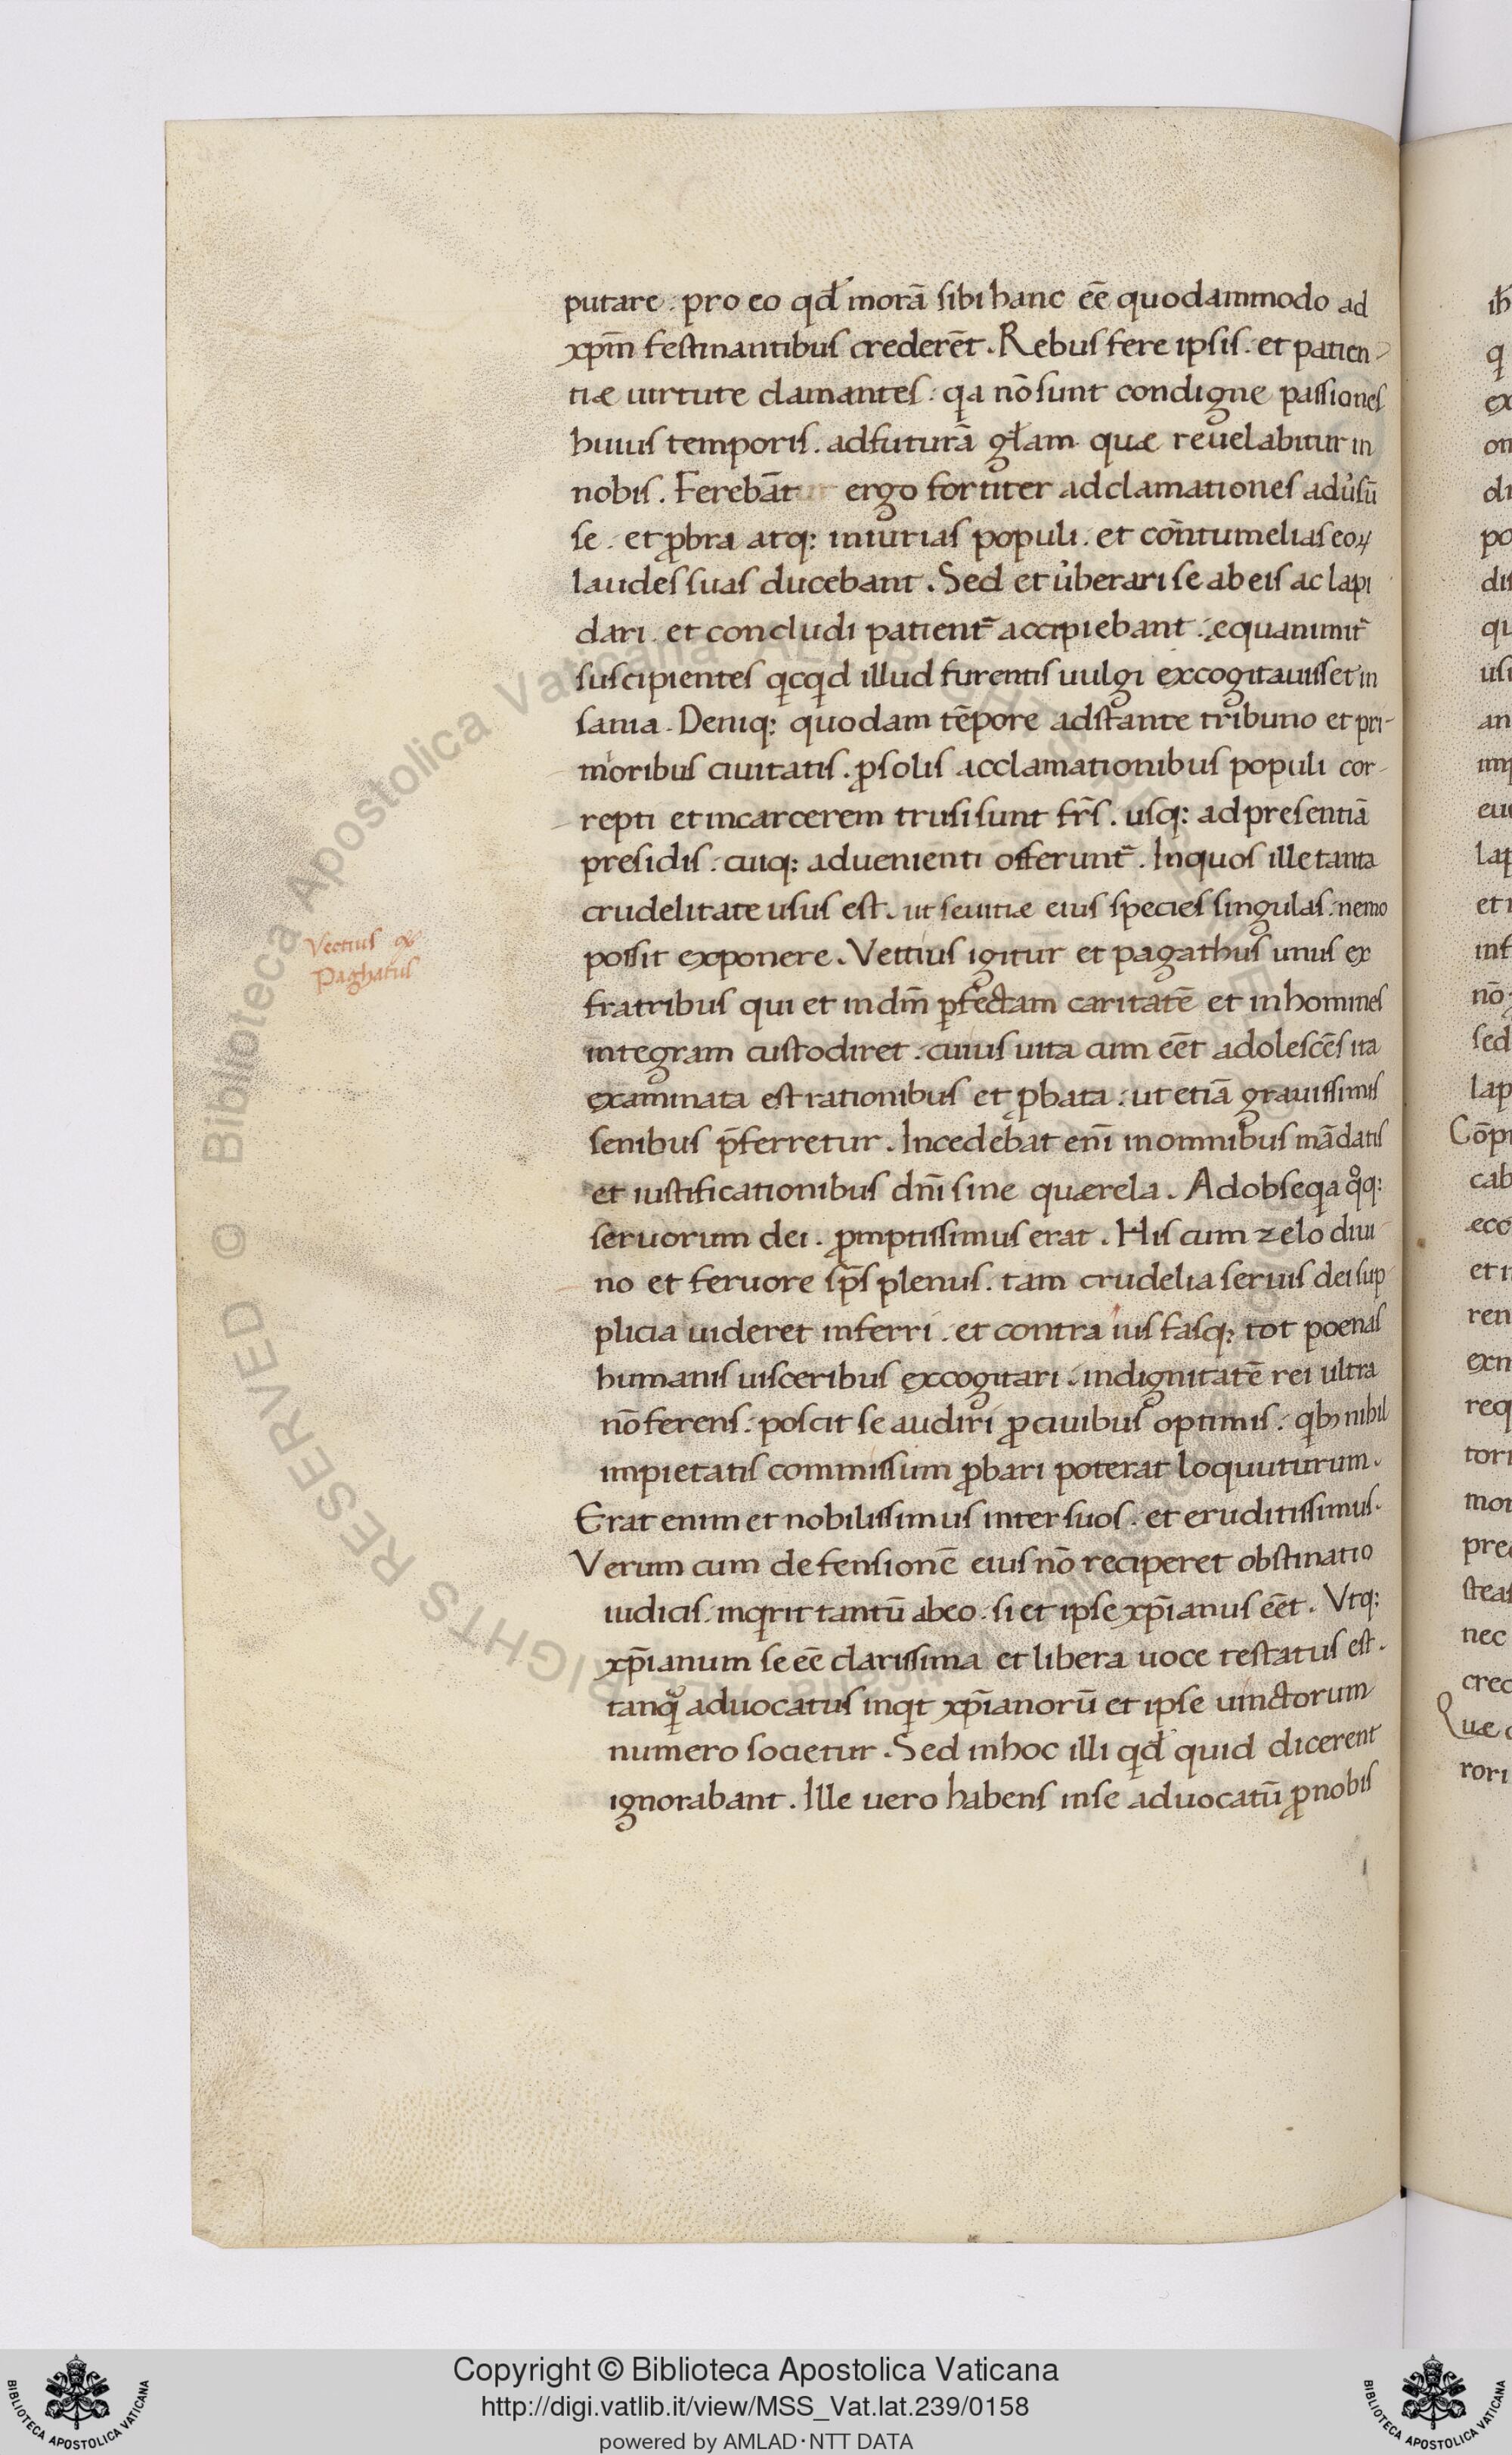 putare. pro eo qd̄ morā sibi hanc eē quodammodo ad
xp̄m festinantibus crederēt. Rebus fere ipsis. et patien-
tiæ uirtute clamantes. qa nō sunt condigne passiones
huius temporis. ad futurā gl̄am quæ reuelabitur in
nobis. Ferebāt ergo fortiter adclamationes adu̓sū
se. et ꝓbra atq: iniurias populi. et contumelias eoꝝ
laudes suas ducebant. Sed et u̓berari se ab eis ac lapi
dari. et concludi patient̄ accipiebant. equanimit̄
suscipientes qcqd illud furentis uulgi excogitauisset in
sania. Deniq: quodam tēpore adstante tribuno et pri-
moribus ciuitatis. ꝓ solis acclamationibus populi cor-
repti et in carcerem trusi sunt fr̄s. usq: ad presentiā
presidis. cuiq: aduenienti offerunt̄. In quos ille tanta
crudelitate usus est. ut seuitiæ eius species singulas. nemo
possit exponere. Vettius igitur et pagathus unus ex
Vectius &
Paghatus
fratribus qui et in dm̄ ꝑfectam caritatē et in homines
integram custodiret. cuius uita cum eēt adolescēs ita
examinata est rationibus et ꝓbata. ut etiā grauissimis
senibus p̄ferretur. Incedebat eni̅ in omnibus mādatis
et iustificationibus dn̄i sine quærela. Ad obseqa qͦq:
seruorum dei. ꝓmptissimus erat. His cum zelo diui
no et feruore sp̄s plenus. tam crudelia seruis dei sup
plicia uideret inferri. et contra ius fasq: tot poenas
humanis uisceribus excogitari. indignitatē rei ultra
nō ferens. poscit se audiri ꝓ ciuibus optimis. qbꝫ nihil
impietatis commissum ꝓbari poterat loquuturum.
Erat enim et nobilissimus inter suos. et eruditissimus.
Verum cum defensionē eius nō reciperet obstinatio
iudicis. inqrit tantū ab eo. si et ipse xp̄ianus eēt. Vtq:
xp̄ianum se eē clarissima et libera uoce testatus est.
tanqͣ aduocatus inqt xp̄ianorū et ipse uinctorum
numero societur. Sed in hoc illi qd̄ quid dicerent
ignorabant. Ille uero habens in se aduocatū ꝓ nobis
© Biblioteca Apostolica Vaticana ALL RIGHTS RESERVED
Copyright © Biblioteca Apostolica Vaticana
http://digi.vatlib.it/view/MSS_Vat.lat.239/0158
powered by AMLAD·NTT DATA
BIBLIOTECA APOSTOLICA VATICANA
BIBLIOTECA APOSTOLICA VATICANA